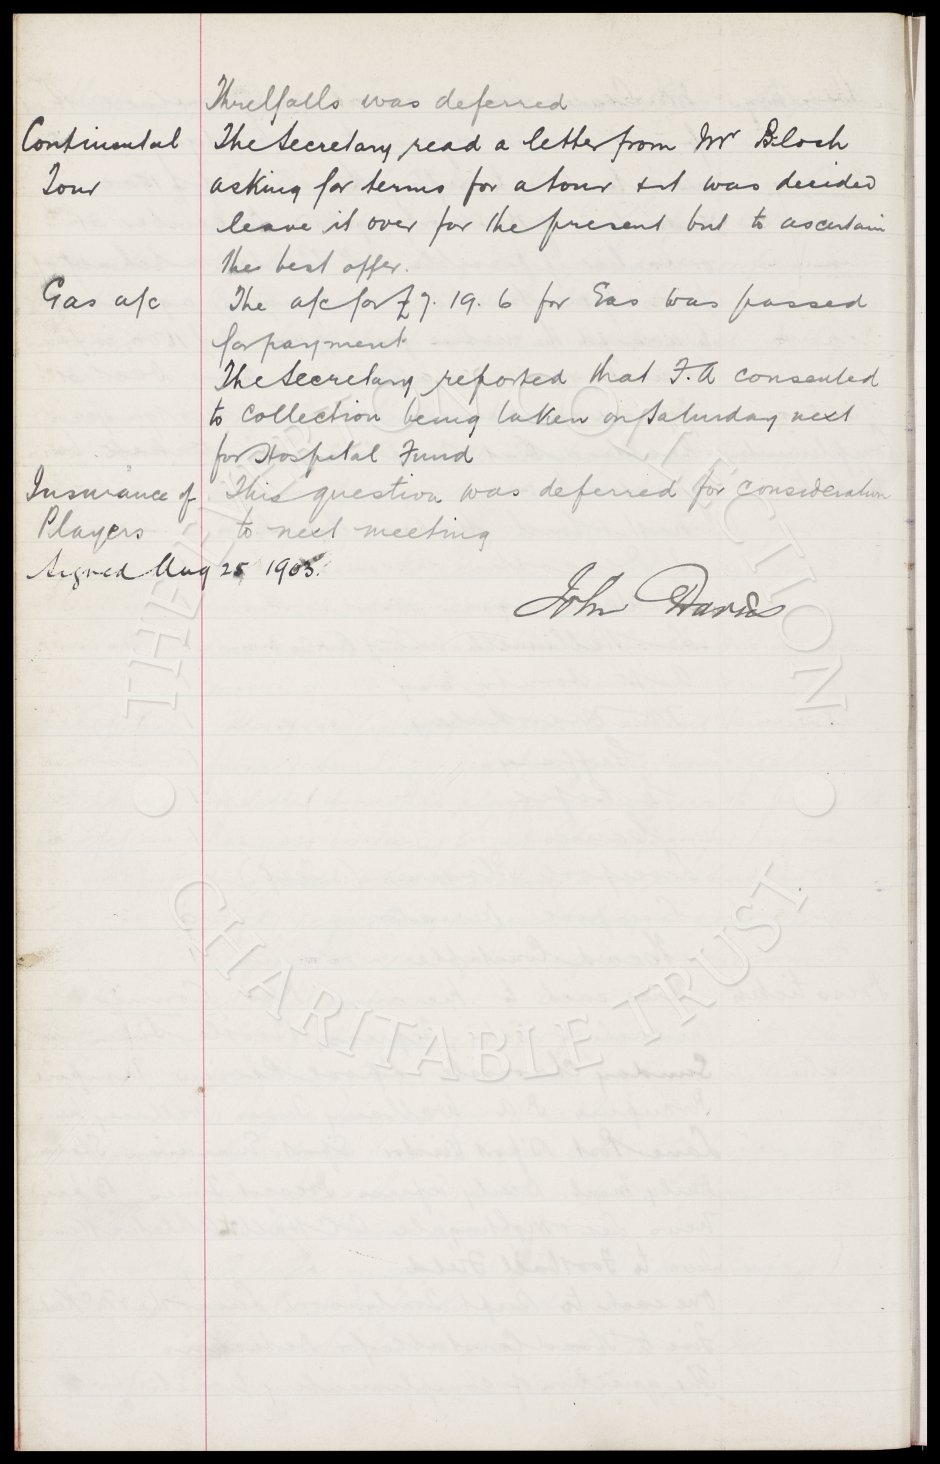 Threlfalls was deferred
Continental The Secretary read a letter from Mr Bloch
Tour asking for terms for a tour & it was decided
leave it over for the present but to ascertain
the best offer.
Gas a/c The a/c for £7. 19. 6 for Gas was passed
for payment
The Secretary reported that F.A consented
to collection being taken on Saturday next
for Hospital Fund
Insurance of This question was deferred for consideration
Players to next meeting
Signed Aug 25 1903.
John Davies
THE EVERTON COLLECTION
CHARITABLE TRUST